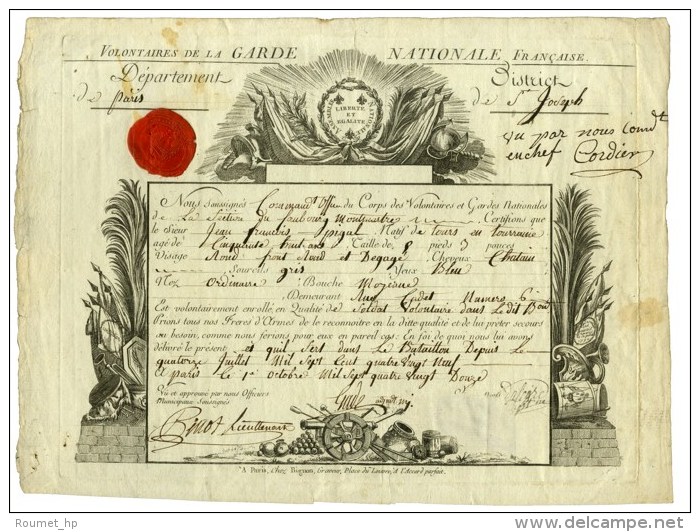 VOLONTAIRES DE LA GARDE NATIONALE FRANÇAISE.
Département District
de Paris de St Joseph
ASSEMBLÉE NATIONALE
LIBERTÉ
ET
EGALITÉ
vu par nous Comdt
en chef Cordier
Nous Soussignés Commandt Offier du Corps des Volontaires et Gardes Nationales
de La Section du foubourg Montmartre Certifions que
le Sieur Jean francois Natif de tours en tourrainne
agé de Cinquante huit ans Taille de 5 pieds 3 pouces
Visage Rond front Rond et Degagé Cheveux Chatain
Sourcils gris Yeux Bleu
Nez Ordinaire Bouche Moyenne
Demeurant Rue Cadet Numero 6
Est volontairement enrollé en Qualité de Soldat Volontaire dans Ledit
Prions tous nos Freres d'Armes de le reconnoitre en la ditte qualité et de lui preter secours
au besoin, comme nous ferions pour eux en pareil cas. En foi de quoi nous lui avons
délivré le présent et quil Sert dans Le Bataillon Depuis Le
quatorze Juillet Mil Sept Cent quatre Vingt Neuf
a paris Le 1er Octobre Mil Sept quatre Vingt Douze
Vu et approuvé par nous Officiers
Municipaux Soussignés
Lieutenant
A Paris, Chez Bignon, Graveur, Place du Louvre, A l'Accord parfait.
Roumet_hp
www.delcampe.net